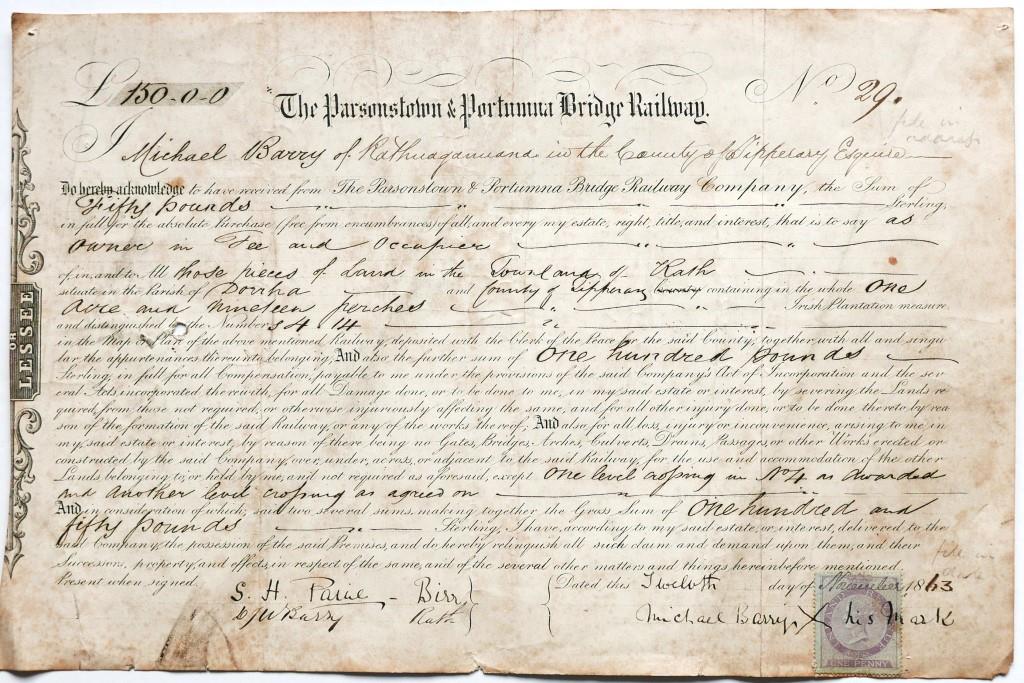 £ 150-0-0
"The Parsonstown & Portumna Bridge Railway.
No. 29.
file in
I Michael Barry of in the County of Tipperary Esquire
Do hereby acknowledge to have received from The Parsonstown & Portumna Bridge Railway Company, the Sum of
Fifty pounds Sterling,
in full for the absolute Purchase (free from encumbrances) of all, and every my estate, right, title, and interest, that is to say as
owner in Fee and Occupier
of, in, and to All those pieces of Land in the Townland of Rath
situate in the Parish of Dorrha and County of Tipperary containing in the whole One
Acre and Nineteen perches Irish Plantation measure
and distinguished by the Numbers 4 14
in the Map or Plan of the above mentioned Railway, deposited with the Clerk of the Peace for the said County, together with all and singu-
lar the appurtenances thereunto belonging, And also the further sum of One hundred pounds
Sterling, in full for all Compensation, payable to me under the provisions of the said Company's Act of Incorporation and the sev-
eral Acts incorporated therewith, for all Damage done, or to be done to me, in my said estate or interest, by severing the Lands re-
quired, from those not required, or otherwise injuriously affecting the same, and for all other injury done, or to be done thereto by rea-
son of the formation of the said Railway, or any of the works thereof; And also for all loss, injury or inconvenience, arising to me, in
my, said estate or interest, by reason of there being no Gates, Bridges, Arches, Culverts, Drains, Passages, or other Works erected or
constructed by the said Company, over, under, across, or adjacent to the said Railway, for the use and accommodation of the other
Lands belonging to, or held by, me, and not required as aforesaid, except One level crossing in No 4 as awarded
and another level crossing as agreed on
And in consideration of which, said two several sums, making together the Gross Sum of One hundred and
fifty pounds Sterling, I have, according to my said estate, or interest, delivered to the
said Company, the possession of the said Premises, and do hereby relinquish all such claim and demand upon them, and their
Successors, property, and effects, in respect of the same, and of the several other matters and things hereinbefore mentioned.
file in
Present when signed. Dated this Twelvth day of November 1863
S. H. Birr
Barry Rath
Michael Barry X his Mark
OR
LESSEE
ONE PENNY